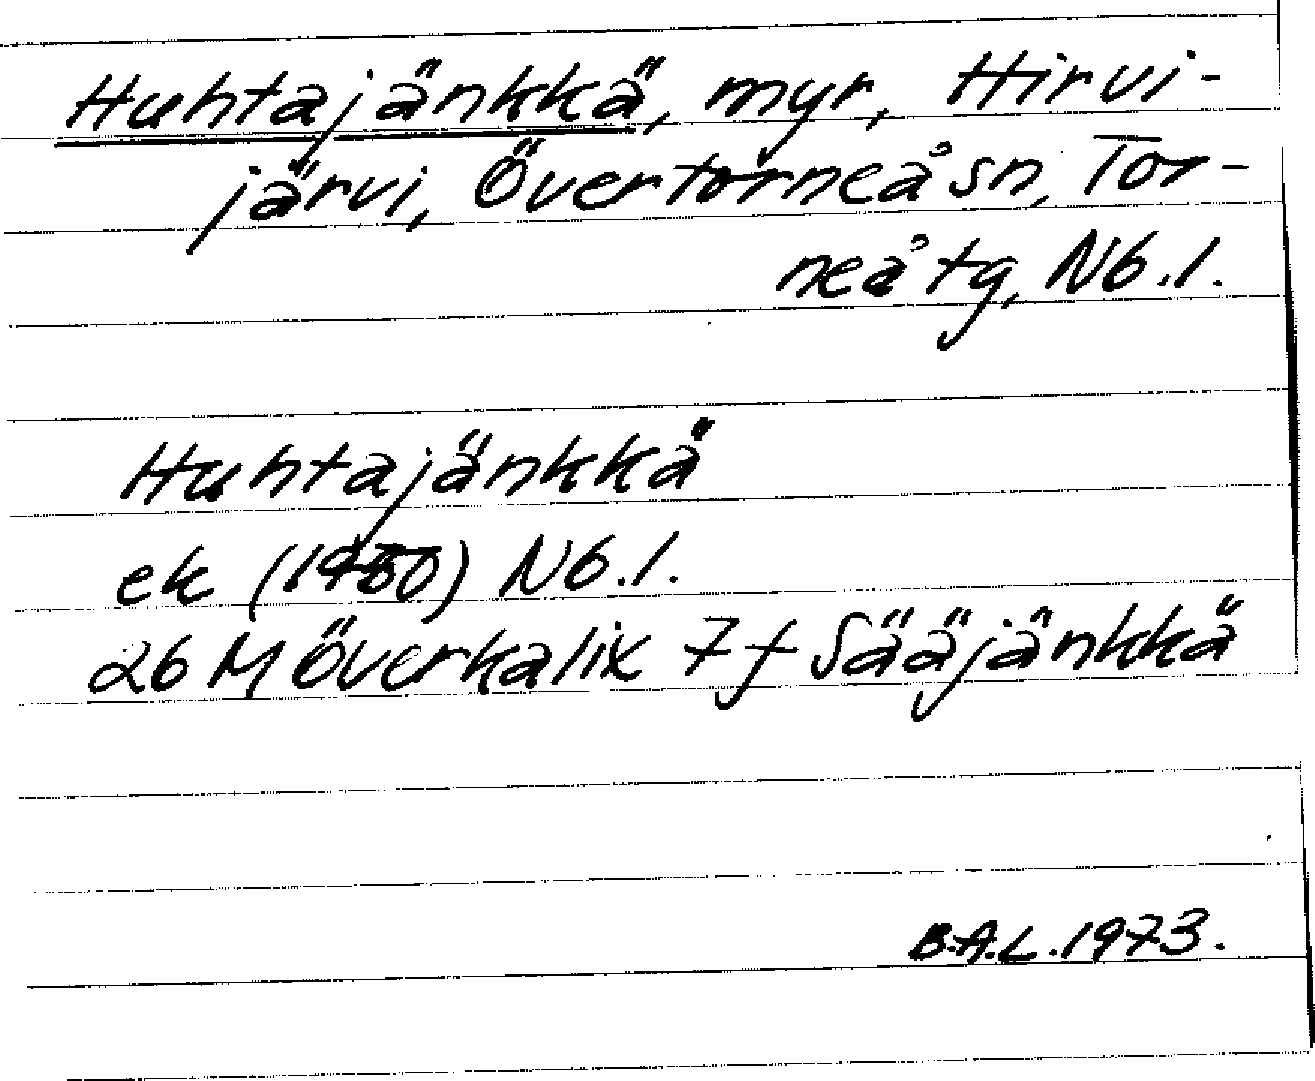 Huhtajänkkä, myr, Hirvi-
järvi, Övertorneå sn, Tor-
neå tg, Nb.l.
Huhtajänkkä
ek (1950) Nb.l.
26 M Överkalix 7f Sääjänkkä
B.A.L. 1973.